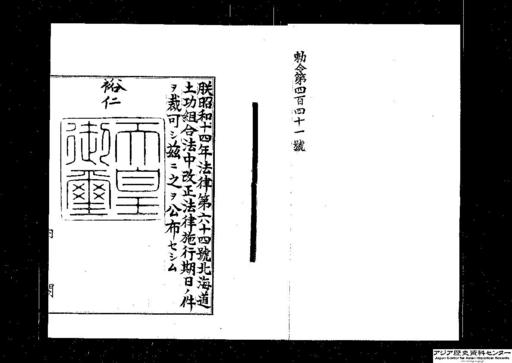 勅令第四百四十一號
朕昭和十四年法律第六十四號北海道
土功組合法中改正法律施行期日ノ件
ヲ裁可シ茲ニ之ヲ公布セシム
裕仁
天皇
御璽
内閣
アジア歴史資料センター
Japan Center for Asian Historical Records